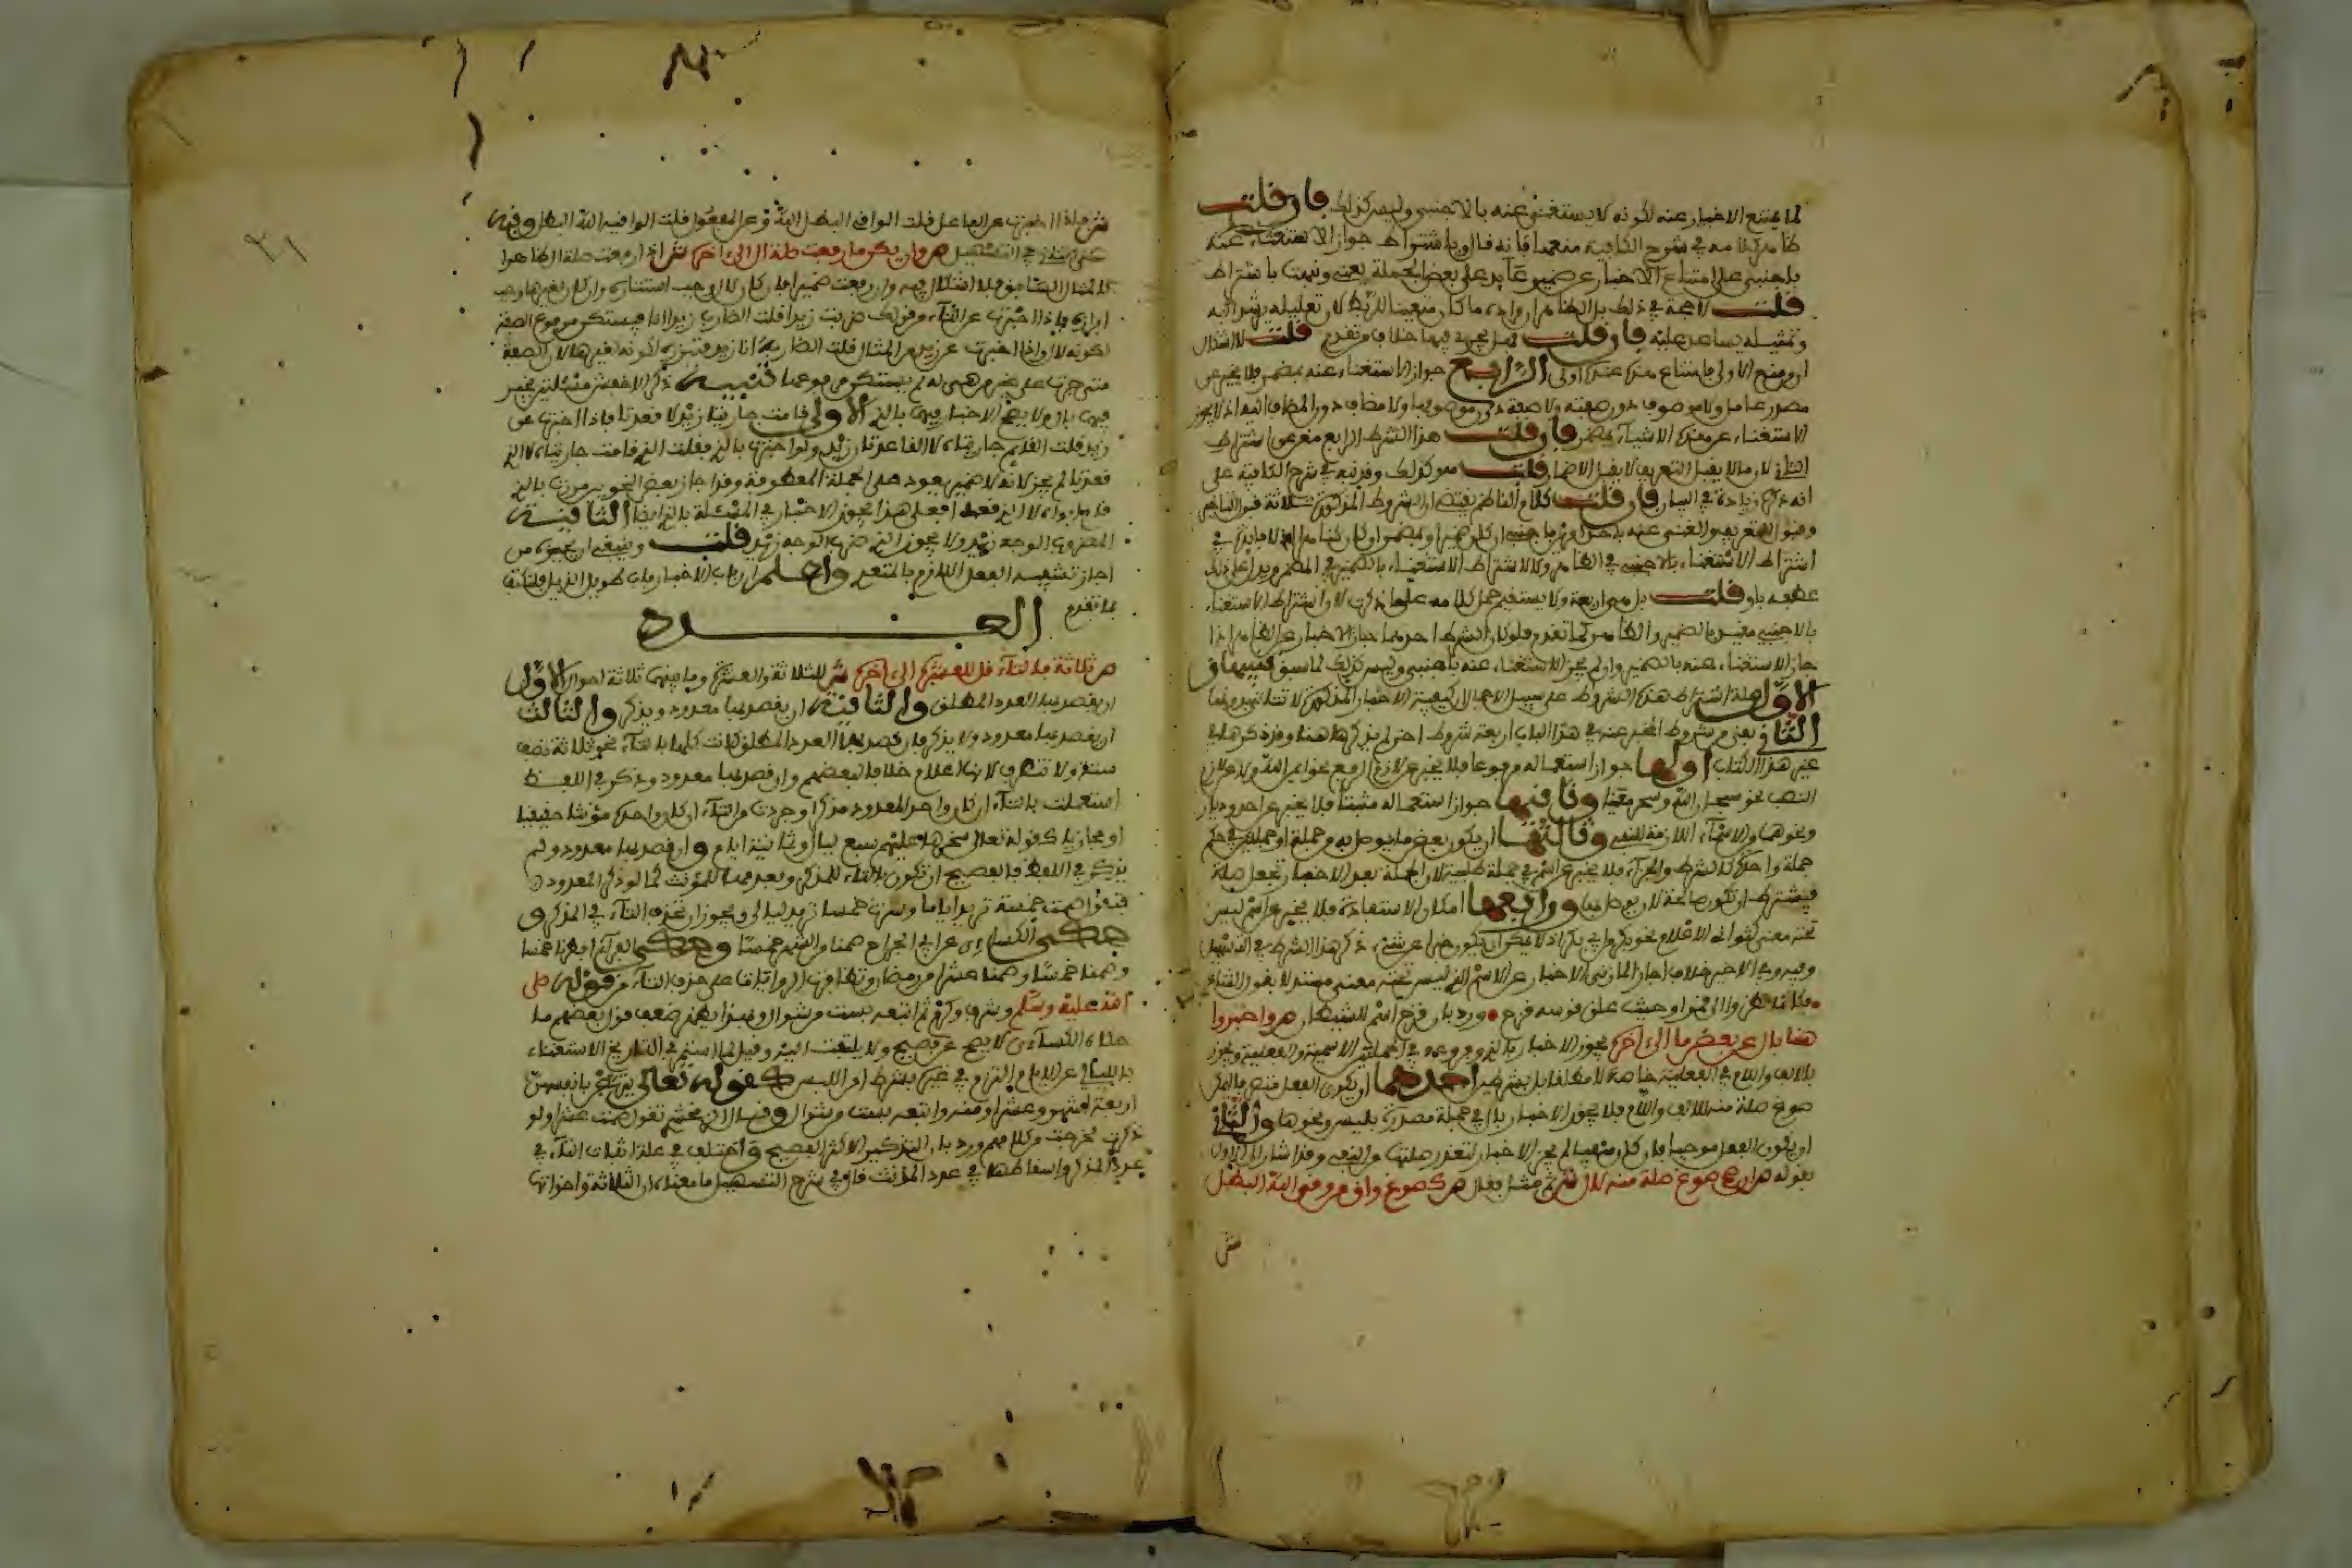 لما يمتنع الاخبار عنه لكونه لا يستغنى عنه بالاجنبي وليس كذلك فان قلت
ظاهر كلامه في شرح الكافية منعهما فانه قال وباشتراط جواز الاستغناء عنه
باجنبي على امتناع الاخبار عن ضمير عايد على بعض الجملة يعني ونبهت باشتراط
قلت لا حجة في ذلك بل الظاهر ان مراده ما كان متعينا للربط لان تعليله يرشد اليه
وتمثيله يساعد عليه فان قلت فهل يجري فيها خلاف من تقدم قلت لا اشكال
ان من منع الاولى فامتناع هذه عنده اولى الرابع جواز الاستغناء عنه بمضمر فلا يخبر عن
مصدر عامل ولا موصوف دون صفته ولا صفة دون موصوفها ولا مضاف دون المضاف اليه اذ لا يجوز
الاستغناء عن هذه الاشياء بمضمر فان قلت هذا الشرط الرابع مغن عن اشتراط
الثاني لان ما لا يقبل التعريف لا يقبل الاضمار قلت هو كذلك وقد نبه في شرح الكافية على
انه ذكره زيادة في البيان فان قلت كلام الناظم يقتضي ان الشروط المذكورة ثلاثة قبول التاخير
وقبول التعريف والغنى عنه باحد امرين باجنبي ان كان ضميرا وبمضمر ان كان ظاهرا اذ لا فايدة في
اشتراط الاستغناء بالاجنبي في الظاهر ولا لاشتراط الاستغناء بالضمير في المضمر ويدل على ذلك
عطفه باو قلت بل هي اربعة ولا يستقيم حمل كلامه على ما ذكرت لان اشتراط الاستغناء
بالاجنبي معتبر بالضمير والظاهر كما تقدم فلو كان الشرط احدهما جاز الاخبار عن الظاهر اذا
جاز الاستغناء عنه بالضمير وان لم يجز الاستغناء عنه باجنبي وليس كذلك لما سبق تنبيهان
الاول جملة اشتراط هذه الشروط على سبيل الاجمال ان كيفية الاخبار المذكورة لا تتاتى بدونها
الثاني بقي من شروط المخبر عنه في هذا الباب اربعة شروط اخر لم يذكرها هنا وقد ذكرها في
غير هذا الكتاب اولها جواز استعماله مرفوعا فلا يخبر عن لازم الرفع نحو ايمن الله ولا عن لازم
النصب نحو سبحان الله وسحر معينا وثانيها جواز استعماله مثبتا فلا يخبر عن احد وديار
ونحوها من الاسماء اللازمة للنفي وثالثها ان يكون بعض ما يوصل به من جملة او جملتين في حكم
جملة واحدة كالشرط والجزاء فلا يخبر عن اسم في جملة طلبية لان الجملة بعد الاخبار تجعل صلة
فيشترط ان تكون صالحة لان يوصل بها ورابعها امكان الاستفادة فلا يخبر عن اسم ليس
تحته معنى كثواني الاعلام نحو بكر من ابي بكر اذ لا يمكن ان يكون خبرا عن شيء ذكر هذا الشرط في التسهيل
وفيه وفي الاخير خلاف اجاز المازني الاخبار عن الاسم الذي ليس تحته معنى مستدلا بقول الشاعر
فكانما نظروا الى قمر او حيث علق قوسه قزح ورد بان قزح اسم للشيطان ص واخبروا
هنا بال عن بعض ما الى اخره يجوز الاخبار بالذي وفروعه في الجملتين الاسمية والفعلية ويجوز
بالالف واللام في الفعلية خاصة لا مطلقا بل بشرطين احدهما ان يكون الفعل متصرفا ليمكن
صوغ صلة منه للالف واللام فلا يجوز الاخبار بال في جملة مصدرة بليس ونحوها والثاني
ان يكون الفعل موجبا فان كان منفيا لم يجز الاخبار لتعذر صلتها من النفي وقد اشار الى الاول
بقوله ص ان صح صوغ صلة منه لال ش ثم مثل فقال ص كصوغ واق من وقى الله البطل
ش
ش فاذا اخبرت عن الفاعل قلت الواقي البطل الله وعن المفعول قلت الواقيه الله البطل وفيه
ص وان يكن ما رفعت صلة ال الى اخره ش اذا رفعت صلة ال ظاهرا
كالمثال السابق فلا اشكال فيه وان رفعت ضميرا فان كان لال وجب استتاره وان كان لغيرها وجب
ابرازه فاذا اخبرت عن التاء من قولك ضربت زيدا قلت الضارب زيدا انا فيستكن مرفوع الصفة
لكونه لال واذا اخبرت عن زيد من المثال قلت الضاربه انا زيد فتبرزه لكونه لغيرها لان الصفة
متى جرت على غير من هي له لم يستكن مرفوعها تنبيه ذكر الاخفش مسئلتين يخبر
فيهما بال ولا يصح الاخبار فيهما بالذي الاولى قامت جاريتا زيد لا قعدتا فاذا اخبرت عن
زيد قلت القايم جاريتاه لا القاعدتان زيد ولو اخبرت بالذي فقلت الذي قامت جاريتاه لا الذي
قعدتا لم يجز لانه لا ضمير يعود على الجملة المعطوفة وقد اجاز بعض النحويين مررت بالذي
قام ابواه لا الذي قعدا فعلى هذا يجوز الاخبار في المسئلة بالذي ايضا الثانية
المضروب الوجه زيد ولا يجوز الذي ضرب الوجه زيد قلت وينبغي ان يجيزه من
اجاز تشبيه الفعل اللازم بالمتعدي واعلم ان باب الاخبار باب طويل الذيل فلنكتف
بما تقدم
العدد
ص ثلاثة بالتاء قل للعشره الى اخره ش للثلاثة والعشرة وما بينهما ثلاثة احوال الاول
ان يقصد بها العدد المطلق والثانية ان يقصد بها معدود ويذكر والثالث
ان يقصد بها معدود ولا يذكر فان قصد بها العدد المطلق كانت كلها بالتاء نحو ثلاثة نصف
ستة ولا تنصرف لانها اعلام خلافا لبعضهم وان قصد بها معدود وذكر في اللفظ
استعملت بالتاء ان كان واحد المعدود مذكرا وجردت من التاء ان كان واحده مؤنثا حقيقيا
او مجازيا كقوله تعالى سخرها عليهم سبع ليال وثمانية ايام وان قصد بها معدود ولم
يذكر في اللفظ فالفصيح ان تكون بالتاء للمذكر وبعدمها للمؤنث كما لو ذكر المعدود
فتقول صمت خمسة تريد اياما وسرت خمسا تريد ليالي ويجوز ان تحذف التاء في المذكر و
حكى الكساءي عن ابي الجراح صمنا من الشهر خمسا وحكى الفراء افطرنا خمسا
وصمنا خمسا وصمنا عشرا من رمضان وتظافرت الروايات على حذف التاء من قوله صلى
الله عليه وسلم ثم اتبعه بست من شوال وبهذا يظهر ضعف قول بعضهم ما
حكاه الكساءي لا يصح عن فصيح ولا يلتفت اليه
كقوله تعالى يتربصن بانفسهن
اربعة اشهر وعشرا ومنه واتبعه بست من شوال
واختلف في علة اثبات التاء في
عدد المذكر واسقاطها في عدد المؤنث قال في شرح التسهيل ما معناه ان الثلاثة واخواتها